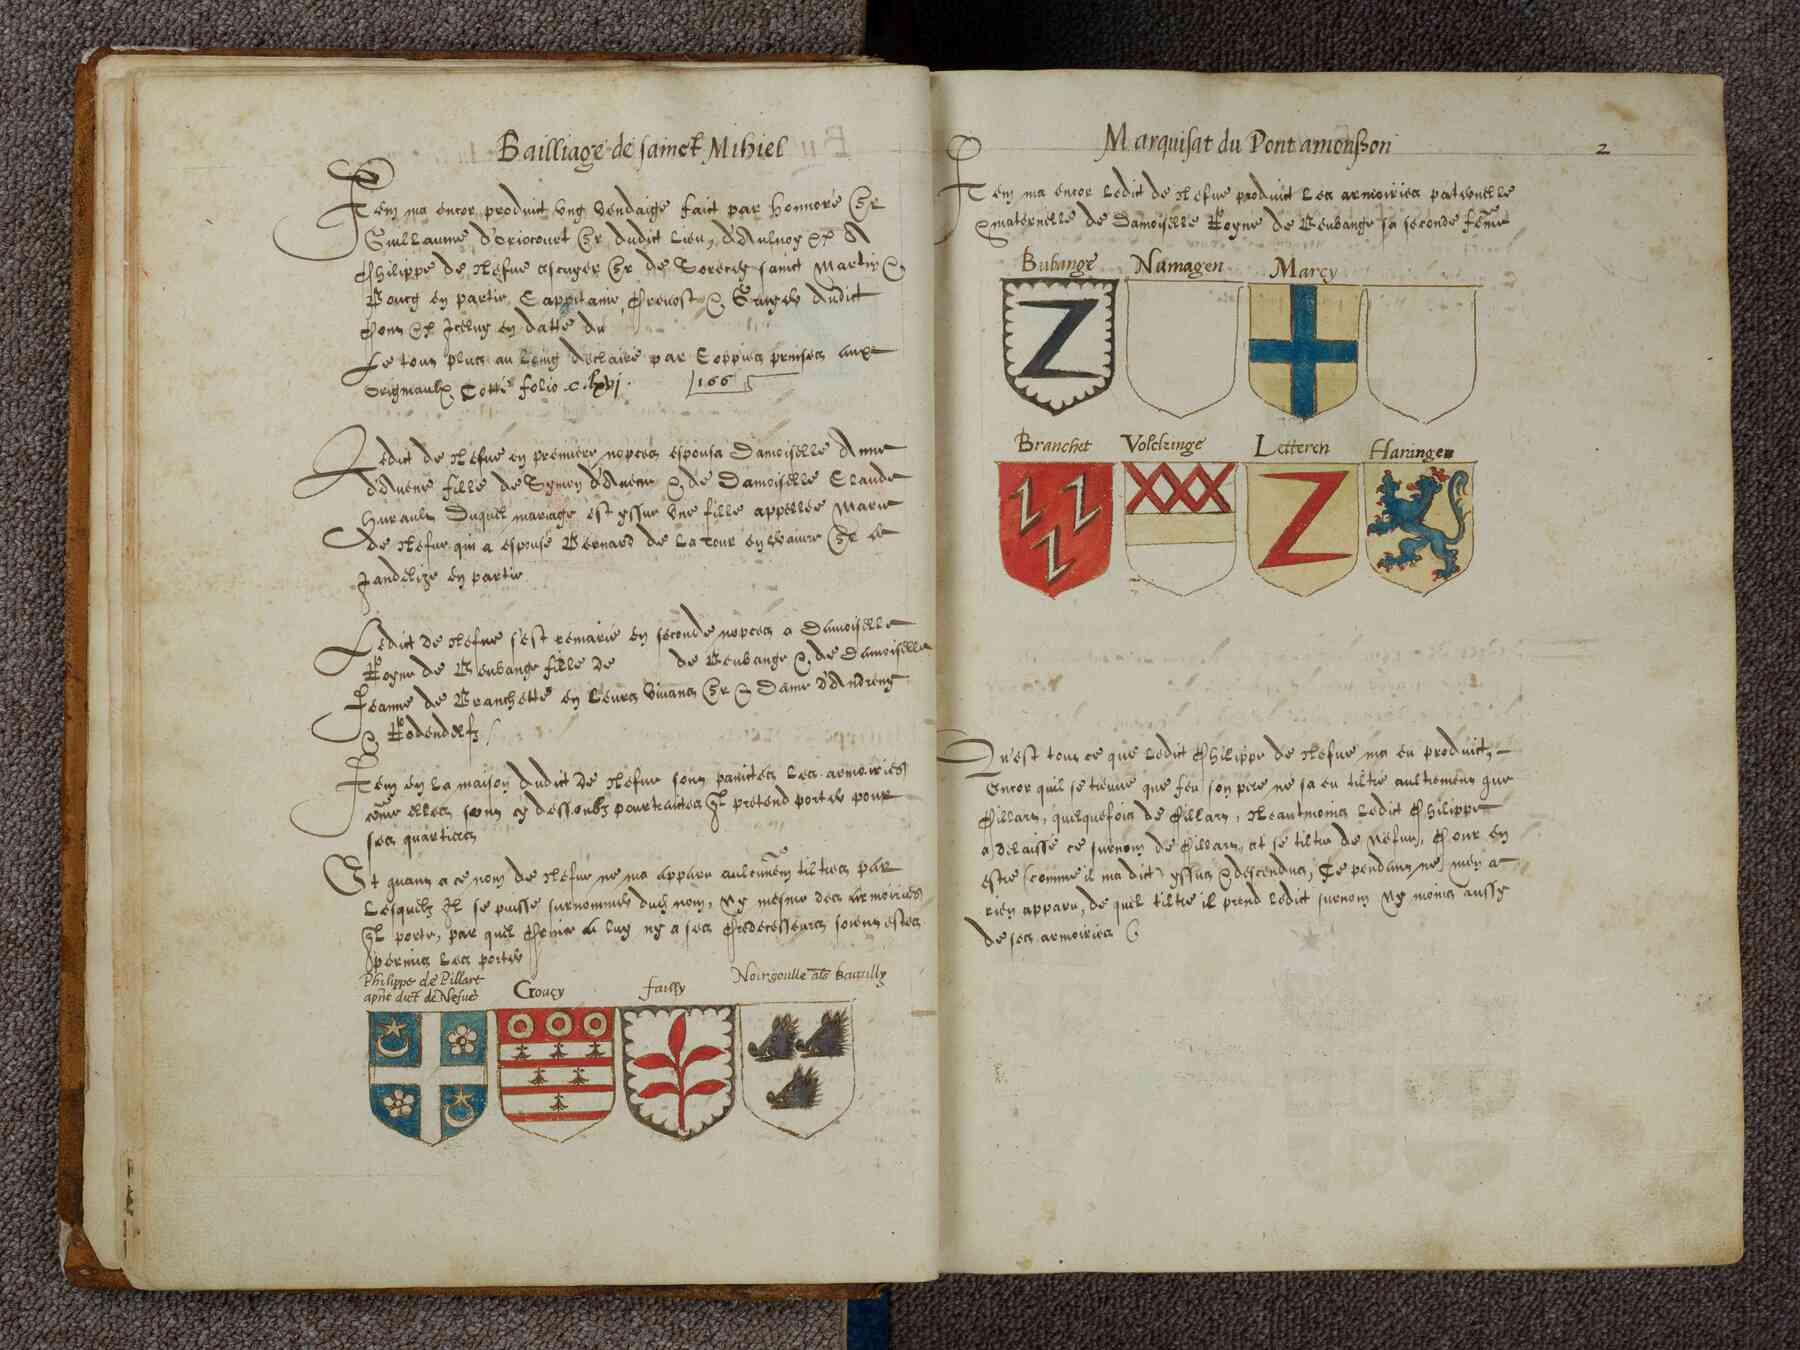 Bailliage de sainct Mihiel
Item ma encor produict ung vendaige faict par Honnoré Sr
Guillaume d'Oriocourt Sr dudict lieu, d'Aulnoy et A
Philippe de Nefue escuyer Sr de Sorecey sainct Martin &
Bourg en partie, Cappitaine, Prevost & Gruyer dudict
en datte du
Le tout plus au long declairé par Coppies prinses aux
Originaulx Cotté folio c. lxvj. 166
Ledict de Nefue en premiere nopces espousa Damoiselle Anne
d'Avene fille de Symon d'Avene & de Damoiselle Claude
Hurault Duquel mariage est yssue une fille appellée Marie
de Nefue qui a espousé Bernard de la Tour en Wavre Sr de
Jandelize en partie
Ledict de Nefue s'est remarié en seconde nopces a Damoiselle
Royne de Beubange fille de de Beubange & de Damoiselle
Jeanne de Branchette en leurs vivans Sr & Dame d'Andreny
& Rodendelfz
Item en la maison dudict de Nefue sont painctes les armoiries
come elles sont cy dessoubz pourtraictes Il pretend porter pour
ses quartiers
Et quant a ce nom de Nefue ne ma apparu aulcunem tiltres par
lesquelz Il se puisse surnommer dudt nom, Ny mesme des armoiries
Il porte, par quel Prince a luy ny a ses Predecesseurs soient estes
permis les porter
Philippe de Pillart
apñt dict de Nefue
Crouçy
failly
Noirgoulle als bavilly
Marquisat du Pont amousson
2
Item ma encor ledict de Nefue produict les armoiries paternelle
& maternelle de Damoiselle Royne de Beubange sa seconde feme
Bubange
Namagen
Marcy
Branchet
Volckringe
Letteren
Haringen
Qu'est tout ce que ledict Philippe de Nefue ma en produict,
Encor quil se treuve que feu son pere ne sa eu tiltré aultrement que
Pillart, quelquefois de Pillart, Neautmoins ledict Philippe
a delaissé ce surnom de Pillart, et se tiltre de Nefue, Pour en
estre (comme il ma dict) yssus & descendus, Ce pendant ne men a
rien apparu, de quel tiltre il prend ledict surnom Ny moins aussy
de ses armoiries